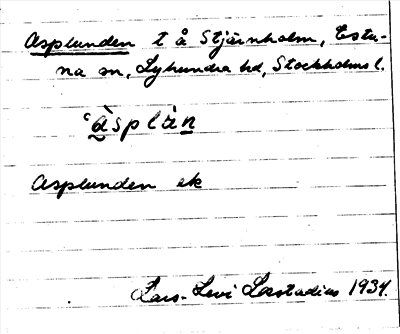 Asplunden t å Stjärnholm, Estu-
na sn, Lyhundra hd, Stockholms l.
àsplàn
Asplunden ek
Lars-Levi Læstadius 1934.